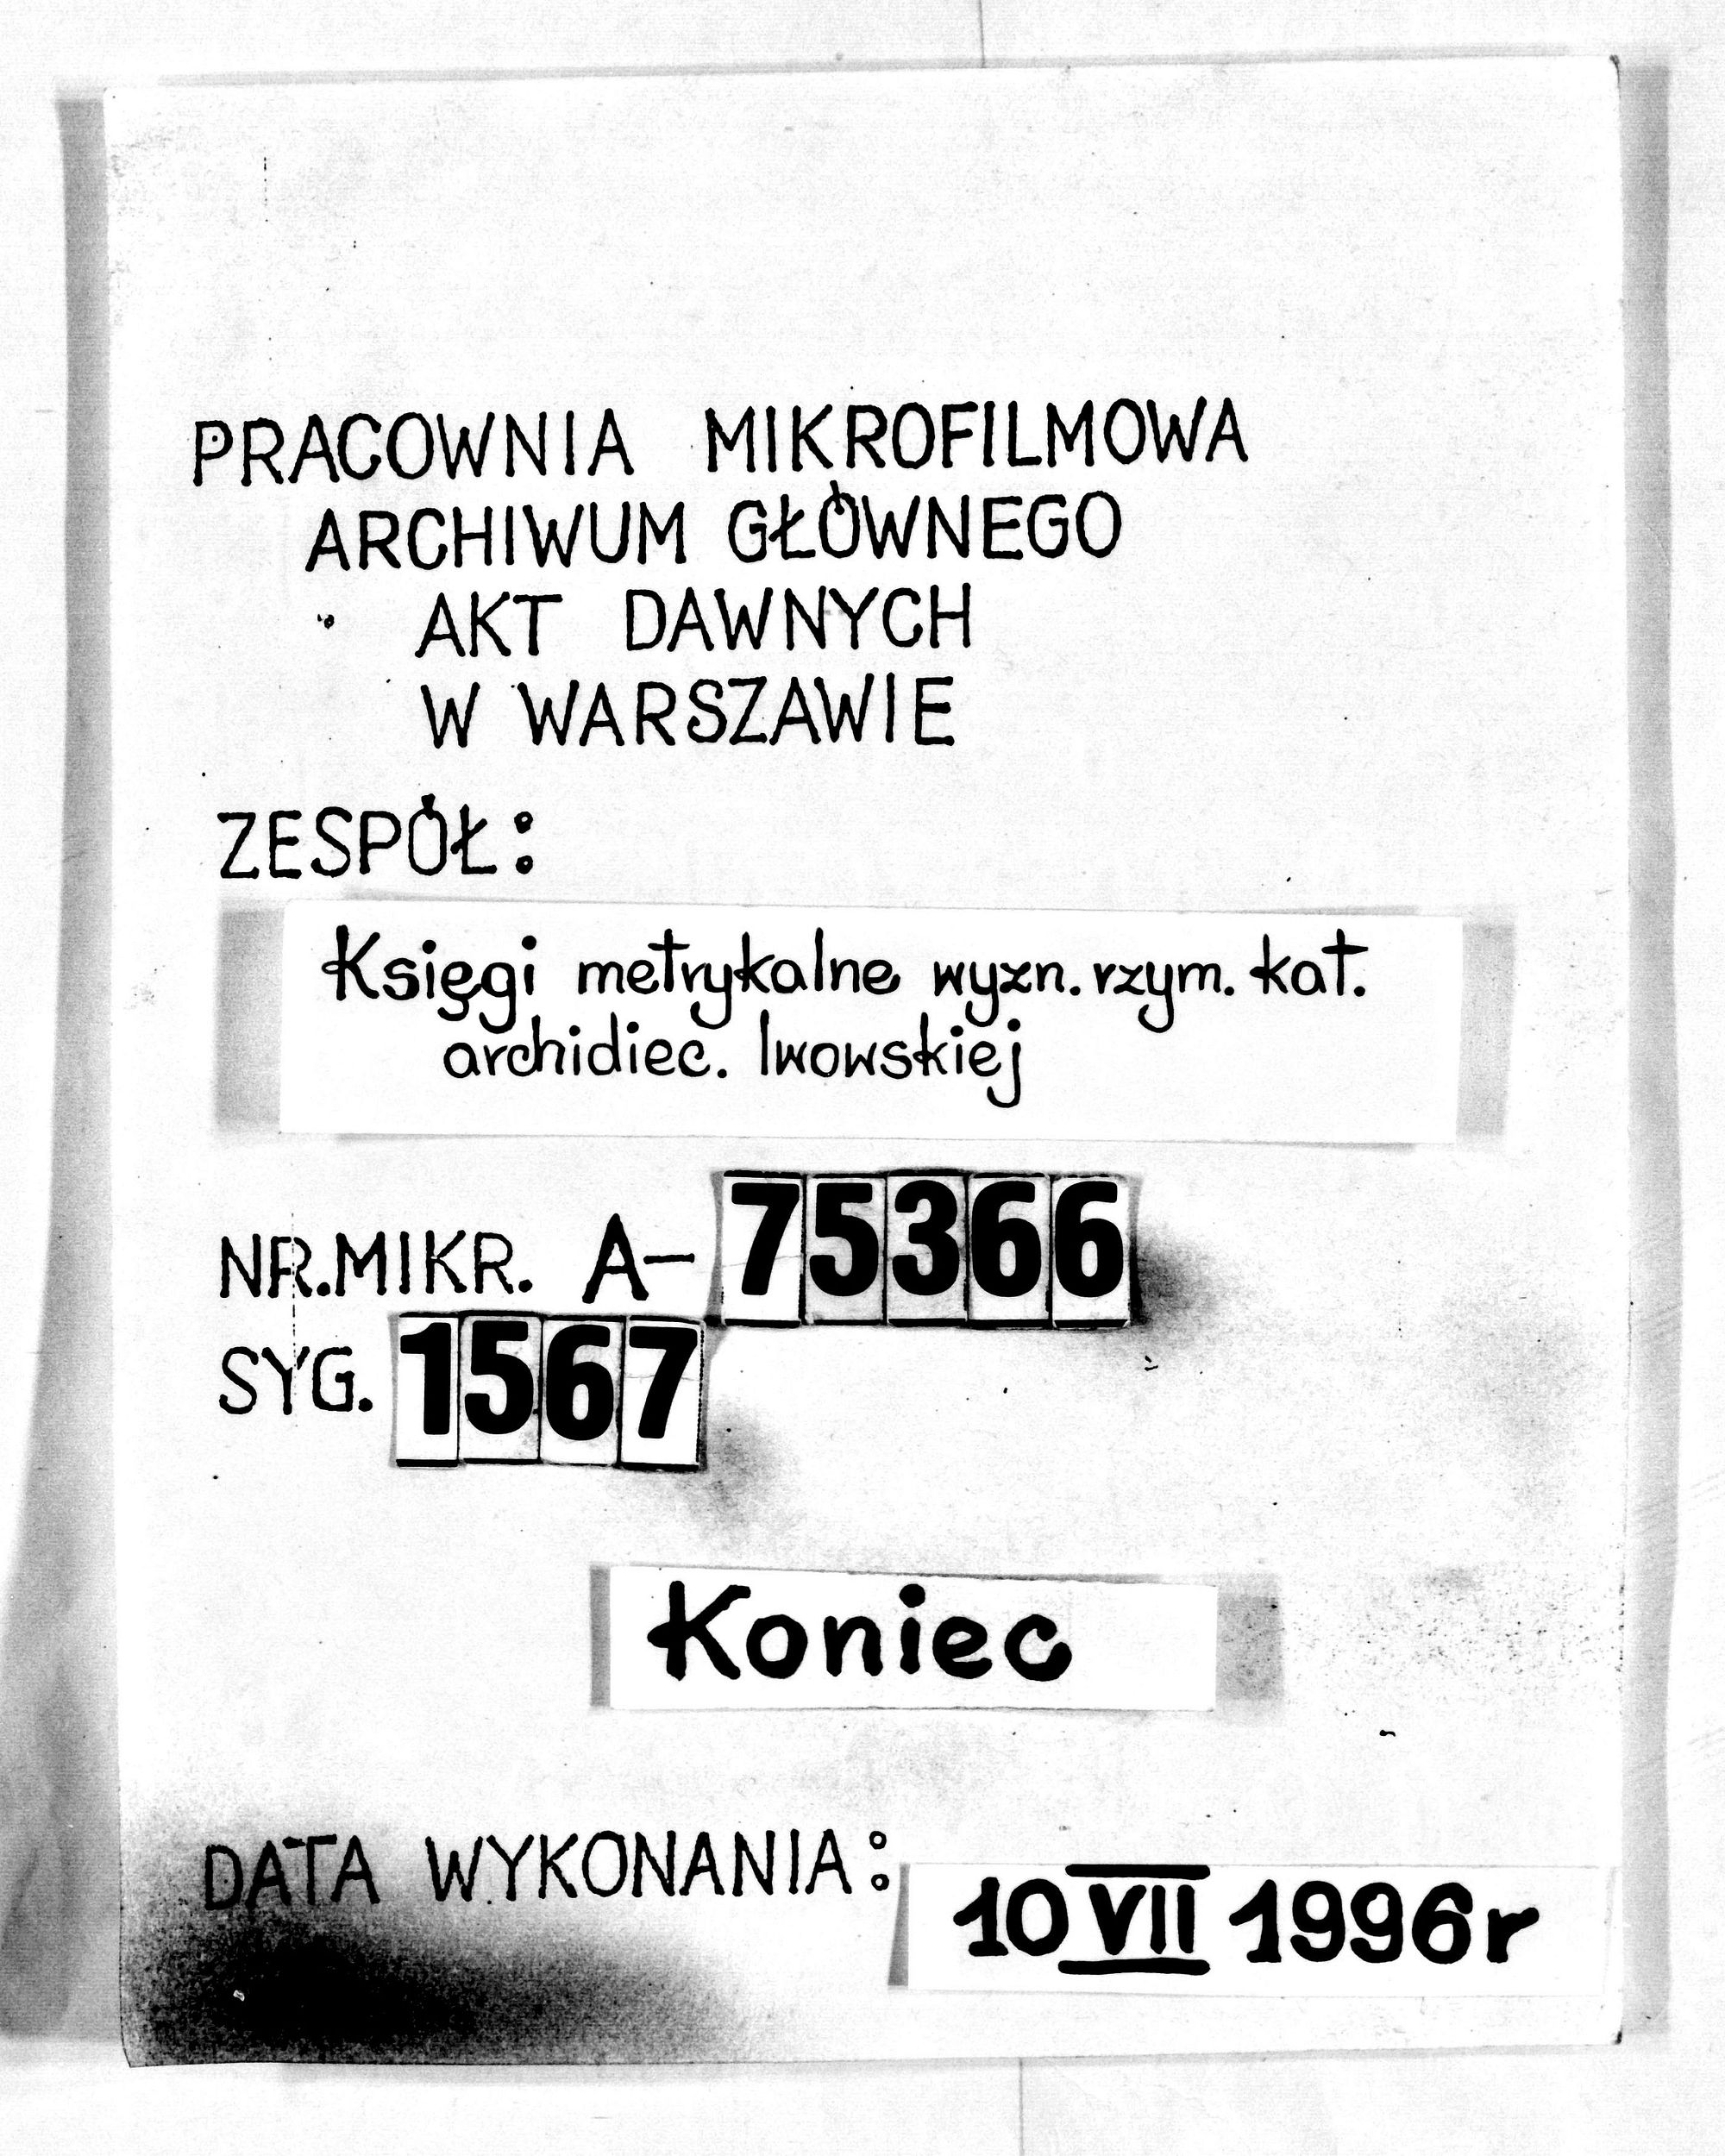 PRACOWNIA MIKROFILMOWA
ARCHIWUM GŁÓWNEGO
AKT DAWNYCH
W WARSZAWIE
ZESPÓŁ:
Księgi metrykalne wyzn. rzym. kat.
archidiec. lwowskiej
NR. MIKR. A- 75366
SYG. 1567
Koniec
DATA WYKONANIA: 10 VII 1996r